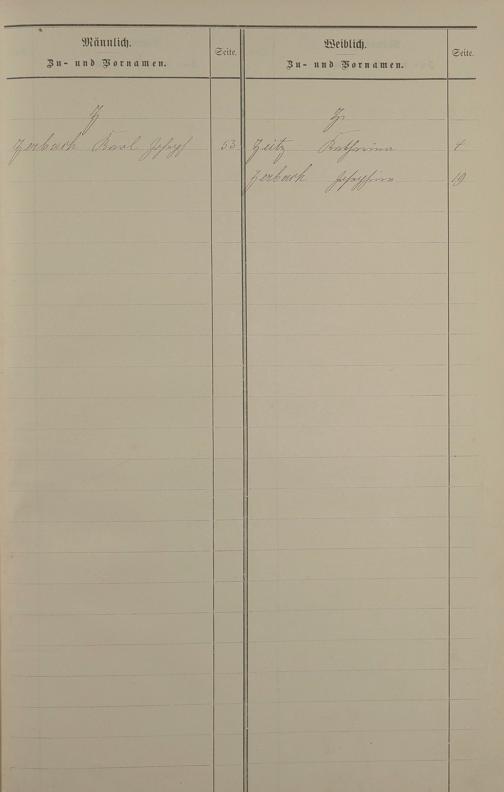 Männlich.
Zu- und Vornamen.
Seite.
Z
Zerbach Karl Joseph 53
Weiblich.
Zu- und Vornamen.
Seite.
Z.
Zeitz Katharina 4
Zerbach Josephina 19